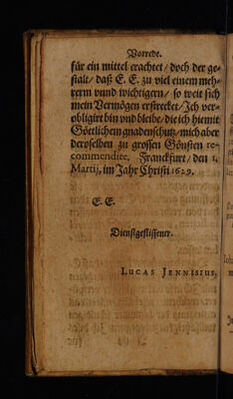 Vorrede.
für ein mittel erachtet / doch der ge-
stalt / daß E. E. zu viel einem meh-
rerm vnnd wichtigern / so weit sich
mein Vermögen erstrecket / Ich ver-
obligirt bin vnd bleibe / die ich hiemit
Göttlichem gnadenschutz / mich aber
deroselben zu grossen Gönsten re-
commendire. Franckfurt / den 1.
Martij, im Jahr Christi 1629.
E. E.
Dienstgeflissener.
LUCAS JENNISIUS.